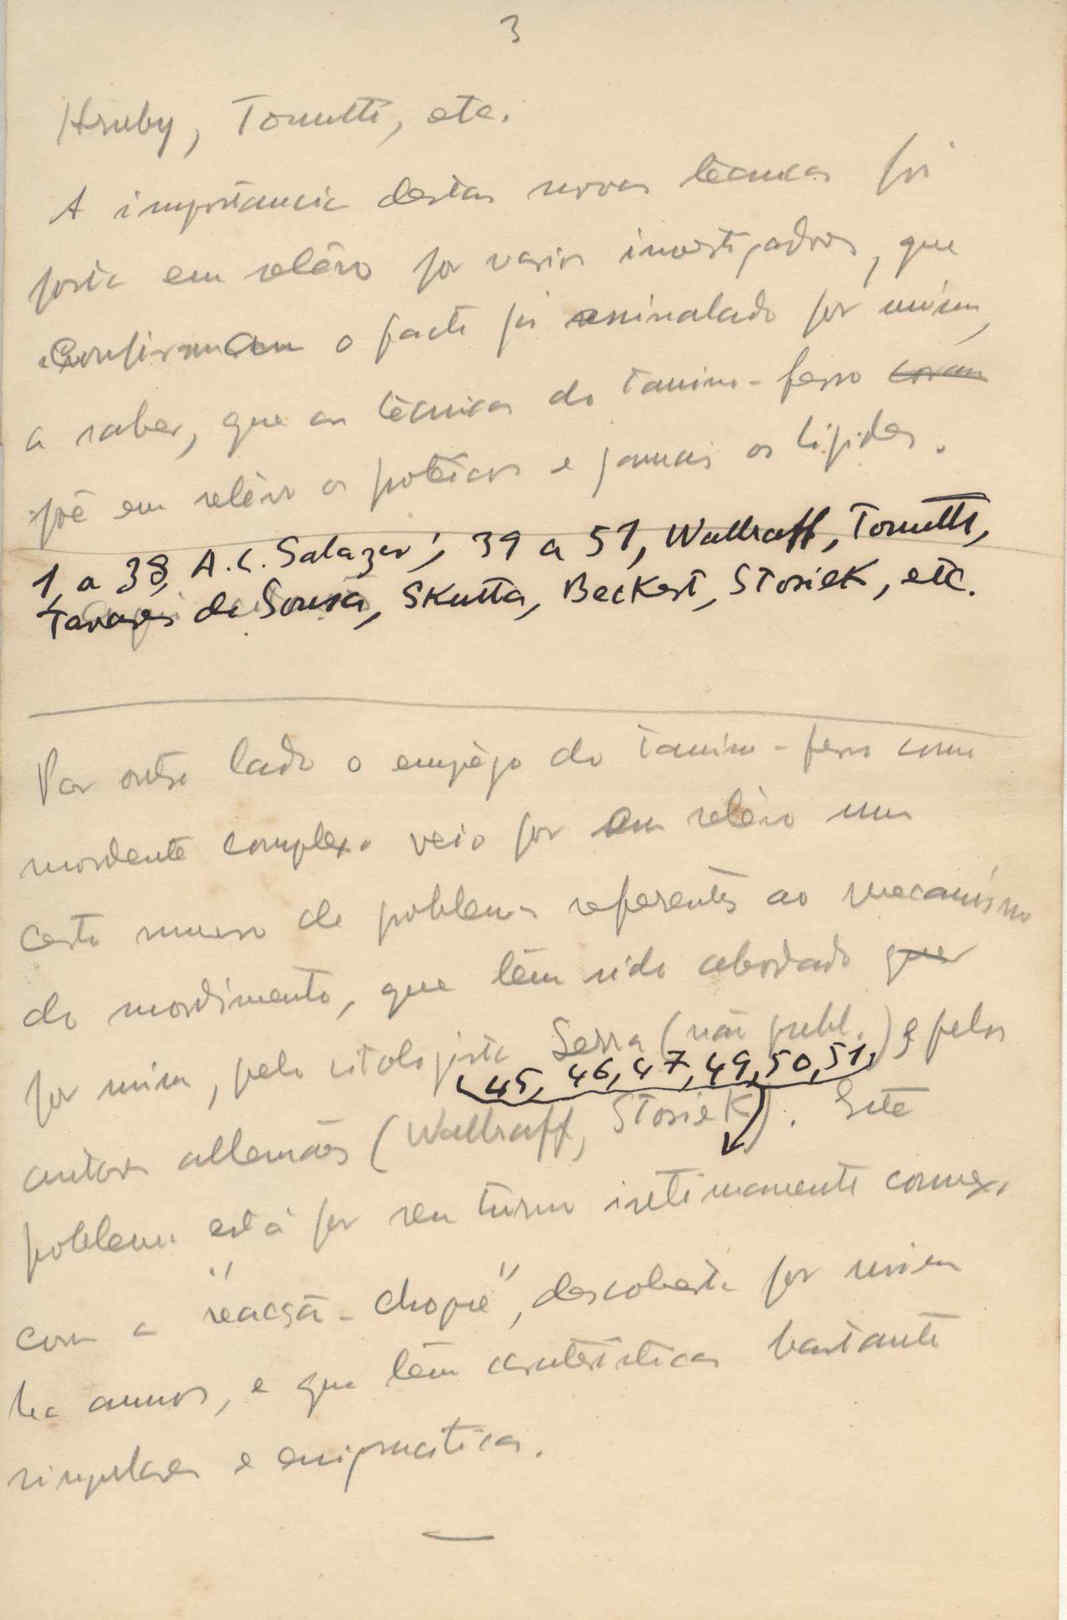 3
Hruby, Tonutti, etc.
A importância destas novas técnicas foi
posta em relêvo por varios investigadores, que
confirmam o facto foi assinalado por mim,
a saber, que as técnicas do tanino-ferro coram
põe em relêvo os proteicos e jamais os lipides.
1 a 38, A. C. Salazar; 39 a 51, Wallraff, Tonutti,
Tavares de Sousa, Skutta, Beckert, Stosiek, etc.
Por outro lado o emprêgo do tanino-ferro como
mordente complexo veio por em relêvo um
certo numero de problemas referentes ao mecanismo
do mordimento, que têm sido abordado quer
por mim, pelo citologista Serra (não publ.) e pelos
45, 46, 47, 49, 50, 51,
autores allemães (Wallraff, Stosiek). Este
problema está por seu turno intimamente connexo
com a "reacção-chopie", descoberta por mim
ha annos, e que têm carateristicas bastante
singulares e enigmaticas.